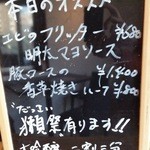 本日のオススメ
エビのフリッター ¥680
明太マヨソース
豚ロースの ¥1,400
香草焼き ハーフ ¥800
"だっさい"
獺祭有ります!!